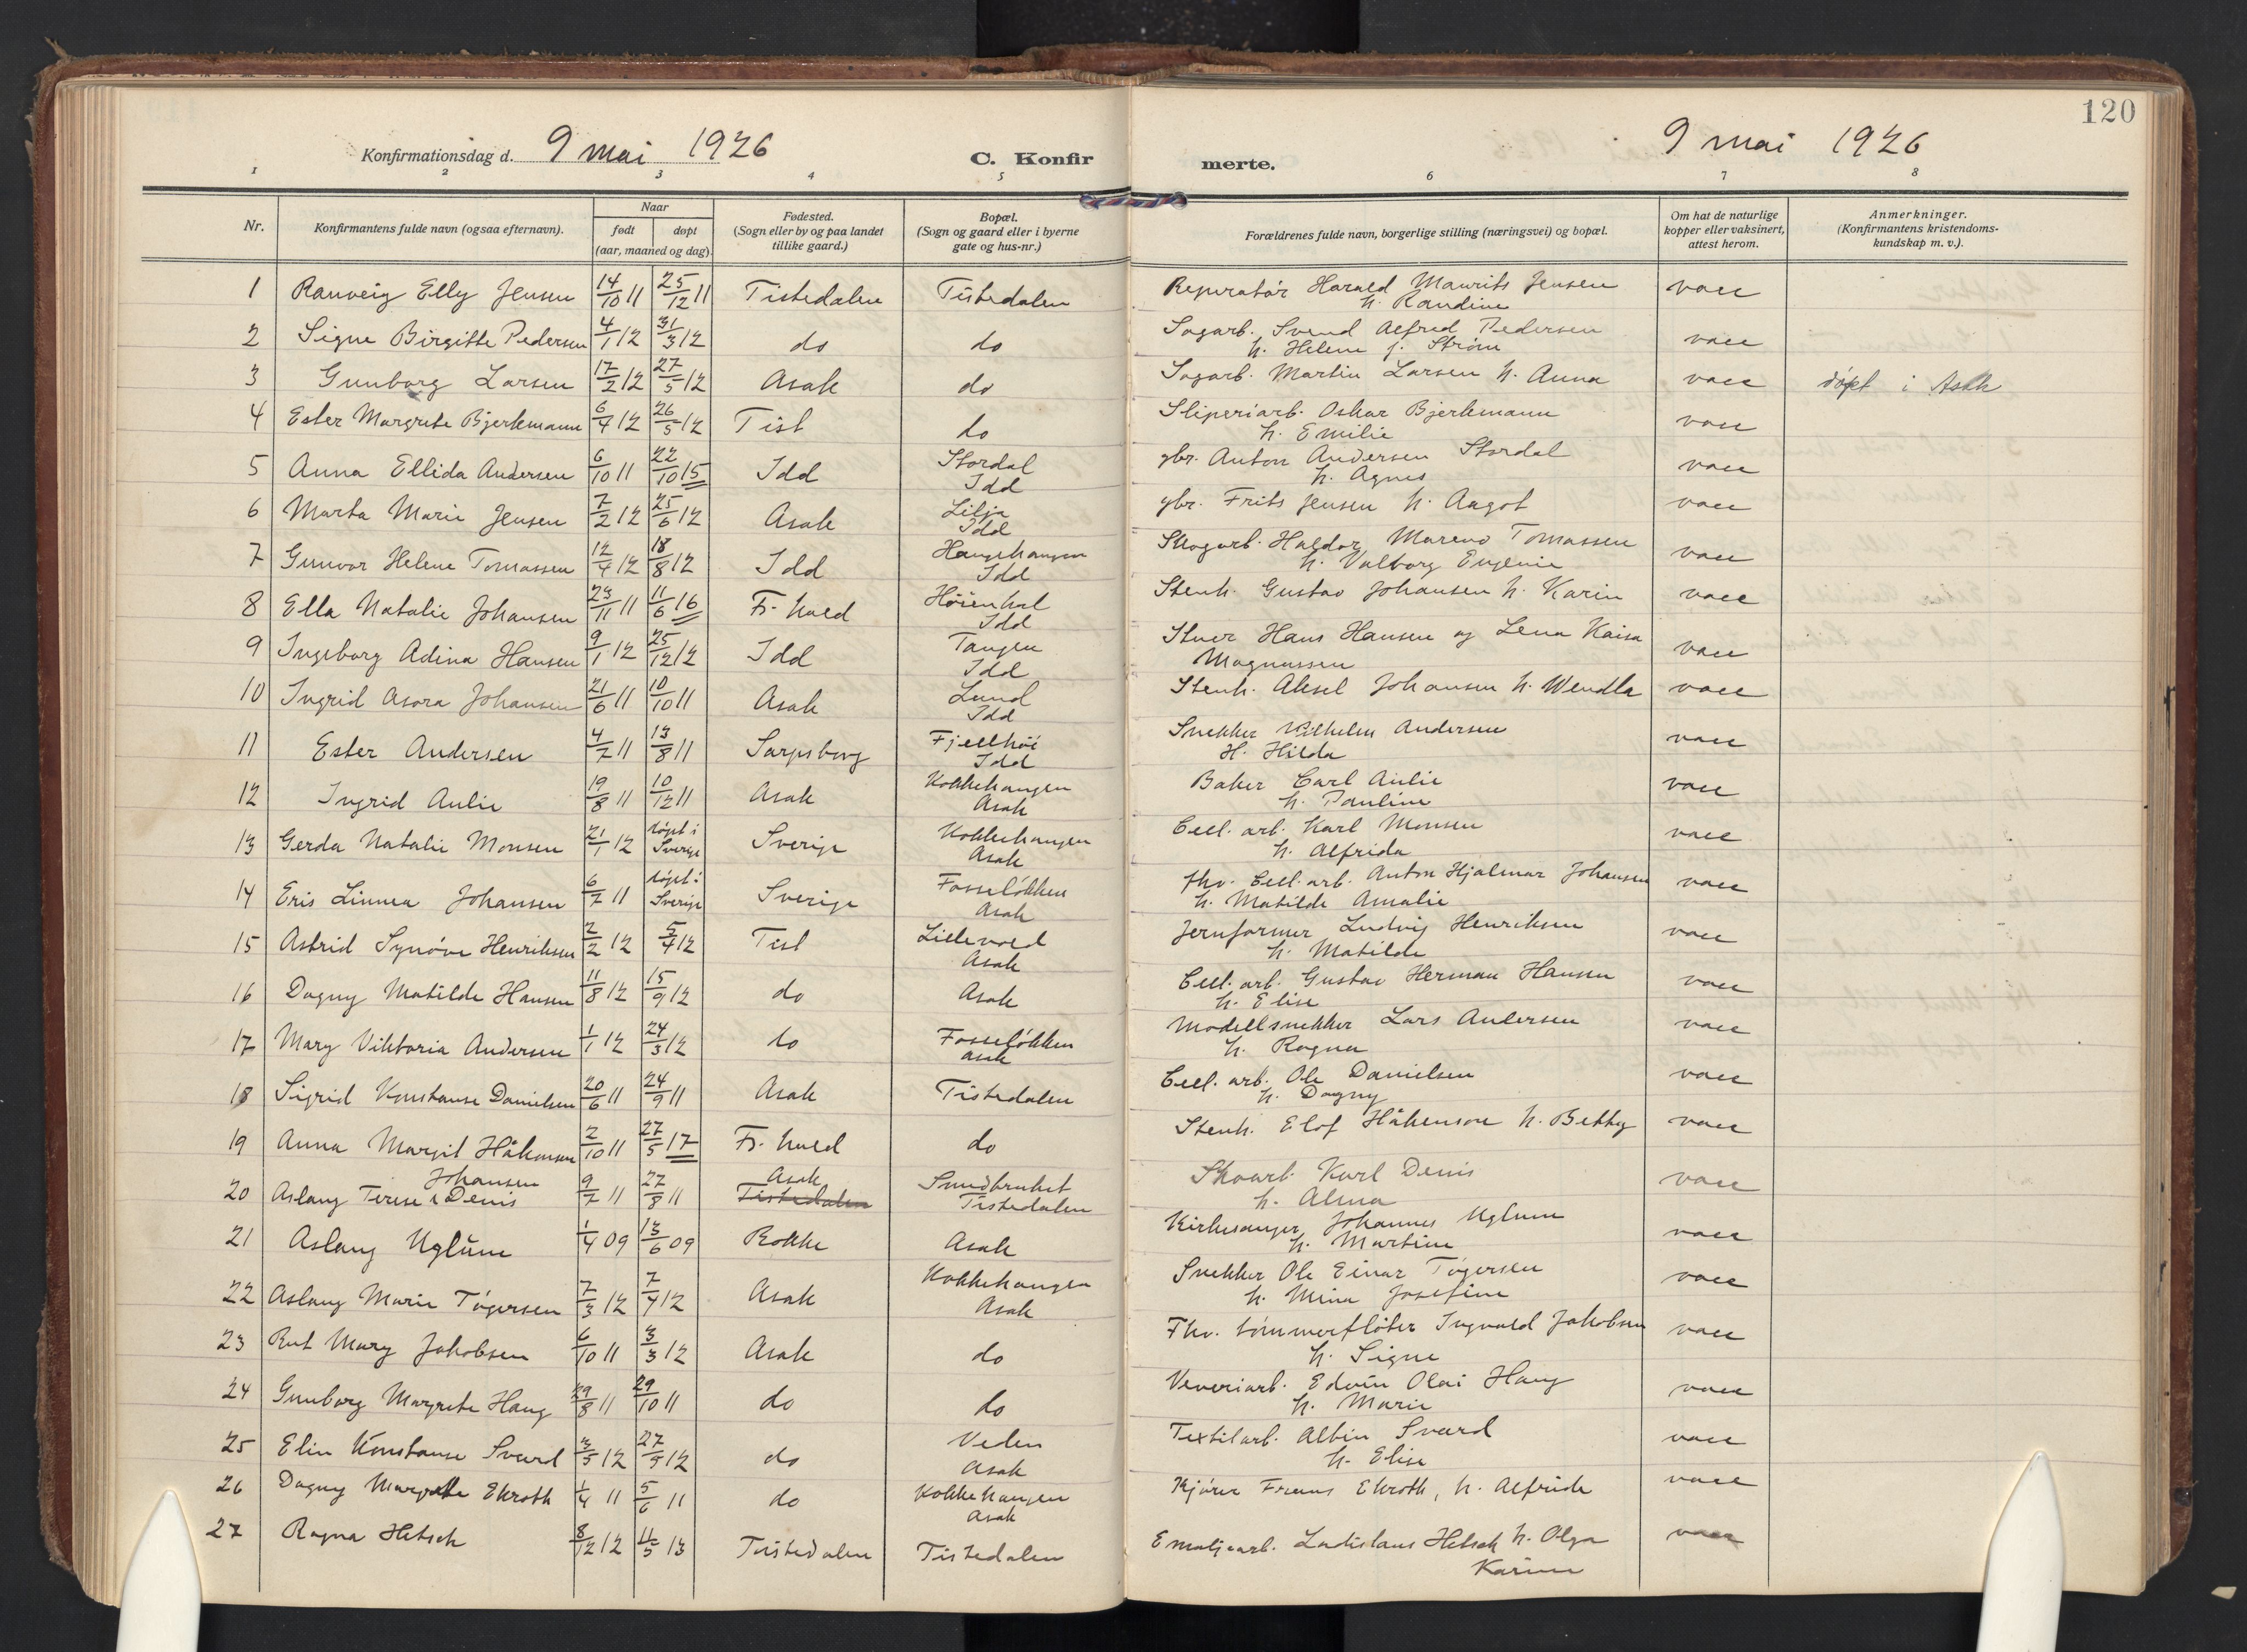 120
Konfirmationsdag d. 9 mai 1926
C. Konfirmerte.
9 mai 1926
1 2 3 4 5 6 7 8
Nr. | Konfirmantens fulde navn (ogsaa efternavn). | Naar født døpt (aar, maaned og dag). | Fødested. (Sogn eller by og paa landet tillike gaard.) | Bopæl. (Sogn og gaard eller i byerne gate og hus-nr.) | Forældrenes fulde navn, borgerlige stilling (næringsvei) og bopæl. | Om hat de naturlige kopper eller vaksinert, attest herom. | Anmerkninger. (Konfirmantens kristendoms-kundskap m. v.).
1 Ranveig Elly Jensen 14/10 11 25/12 11 Tistedalen Tistedalen Reperatør Harald Maurits Jensen h. Randine vacc
2 Signe Birgitte Pedersen 4/1 12 31/3 12 do do Sagarb. Svend Alfred Pedersen h. Helene f. Strøm vacc
3 Gunborg Larsen 17/2 12 27/5 12 Asak do Sagarb. Martin Larsen h. Anna vacc døpt i Asak
4 Ester Margrete Bjerkemann 6/4 12 26/5 12 Tist do Sliperiarb. Oskar Bjerkemann h. Emilie vacc
5 Anna Ellida Andersen 6/10 11 22/10 15 Idd Stordal Idd gbr. Anton Andersen Stordal h. Agnes vacc
6 Marta Marie Jensen 7/2 12 25/6 12 Asak Lilja Idd gbr. Frits Jensen h. Aagot vacc
7 Gunvor Helene Tomassen 12/4 12 18/8 12 Idd Idd Skogarb. Haldor Mareno Tomassen h. Valborg Eugenie vacc
8 Ella Natalie Johansen 23/11 11 11/6 16 Fr. hald Idd Stenh. Gustav Johansen h. Karin vacc
9 Ingeborg Adina Hansen 9/1 12 25/12 12 Idd Tangen Idd Stuer Hans Hansen og Lena Kaisa Magnussen vacc
10 Ingrid Asora Johansen 21/6 11 10/10 11 Asak Lund Idd Stenh. Aksel Johansen h. Wendla vacc
11 Ester Andersen 4/7 11 13/8 11 Sarpsborg Fjellhøi Idd Snekker Vilhelm Andersen H. Hilda vacc
12 Ingrid Aulie 19/8 11 10/12 11 Asak Kokkehaugen Asak Baker Carl Aulie h. Pauline vacc
13 Gerda Natalie Monsen 21/1 12 døpt i Sverige Sverige Kokkehaugen Asak Cell. arb. Karl Monsen h. Alfrida vacc
14 Eris Linnea Johansen 6/7 11 døpt i Sverige Sverige Fosseløkken Asak fhv. Cell. arb. Anton Hjalmar Johansen h. Matilde Amalie vacc
15 Astrid Synøve Henriksen 2/2 12 5/4 12 Tist Lillevold Asak Jernformer Ludvig Henriksen h. Matilde vacc
16 Dagny Matilde Hansen 11/8 12 15/9 12 do Asak Cell. arb. Gustav Herman Hansen h. Elise vacc
17 Mary Viktoria Andersen 1/1 12 24/3 12 do Fosseløkken Asak Modellsnekker Lars Andersen h. Ragna vacc
18 Sigrid Konstanse Danielsen 20/6 11 24/9 11 Asak Tistedalen Cell. arb. Ole Danielsen h. Dagny vacc
19 Anna Margit Håkonson 2/10 11 27/5 17 Fr. hald do Stenh. Elof Håkenson h. Betty vacc
20 Aslaug Terese Johansen Denis 9/7 11 27/8 11 Asak Tistedalen Smedbruket Tistedalen Skoarb. Karl Denis h. Alma vacc
21 Aslaug Uglum 1/4 09 13/6 09 Rokke Asak Kirkesanger Johannes Uglum h. Martine vacc
22 Aslaug Marie Tøgersen 7/3 12 7/4 12 Asak Kokkehaugen Asak Snekker Ole Einar Tøgersen h. Mina Josefine vacc
23 Rut Mary Jakobsen 6/10 11 3/3 12 Asak do Fhv. tømmerfløter Ingvald Jakobsen h. Signe vacc
24 Gunborg Margrete Haug 29/8 11 29/10 11 do do Veveriarb. Edvin Olai Haug h. Marie vacc
25 Elin Konstanse Sverd 3/5 12 27/5 12 do Veden Asak Textilarb. Albin Sverd h. Elise vacc
26 Dagny Margrethe Ekroth 1/4 11 5/6 11 do Kokkehaugen Asak Kjører Frans Ekroth, h. Alfride vacc
27 Ragna Hetsch 8/12 12 11/5 13 Tistedalen Tistedalen Emaljearb. Ladislaus Hetsch h. Olga Karine vacc